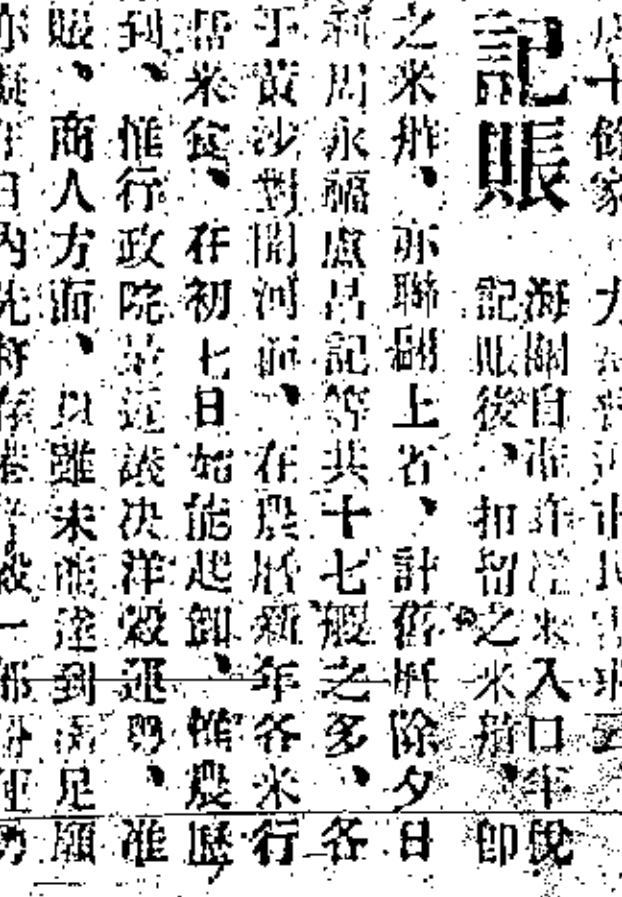 十餘家
記賬
海關自准許洋米入口年稅
記賬後、扣留之米船、即
之米船、亦聯翩上省、計舊曆除夕日
新周永福盧昌記等共十七艘之多、各
于黃沙對開河面、在農曆新年各米行
米食、在初七日始能起卸、惟農歷
到、惟行政院最近議决洋穀運粵、准
賬、商人方面、以雖未能達到滿足願
日內先將存港洋穀一部份運粵